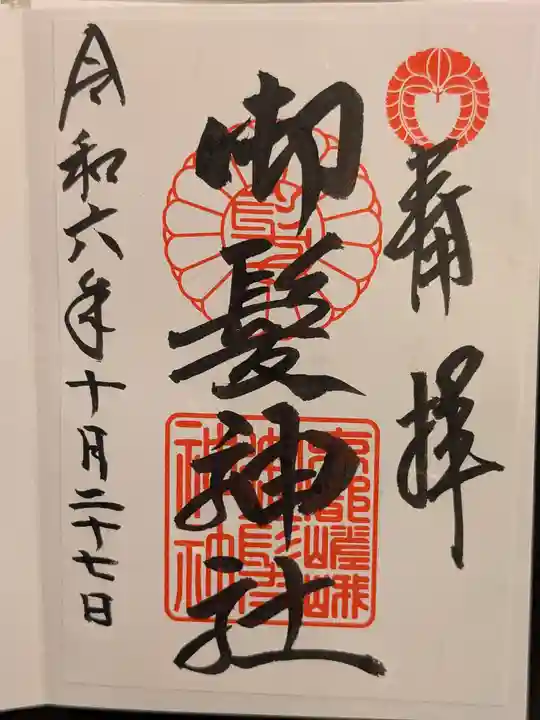 奉拝
御髪神社
京都嵯峨
御髪
神社
令和六年十月二十七日